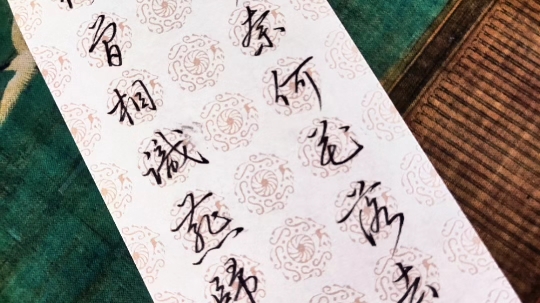 奈何花落去
曾相識燕歸